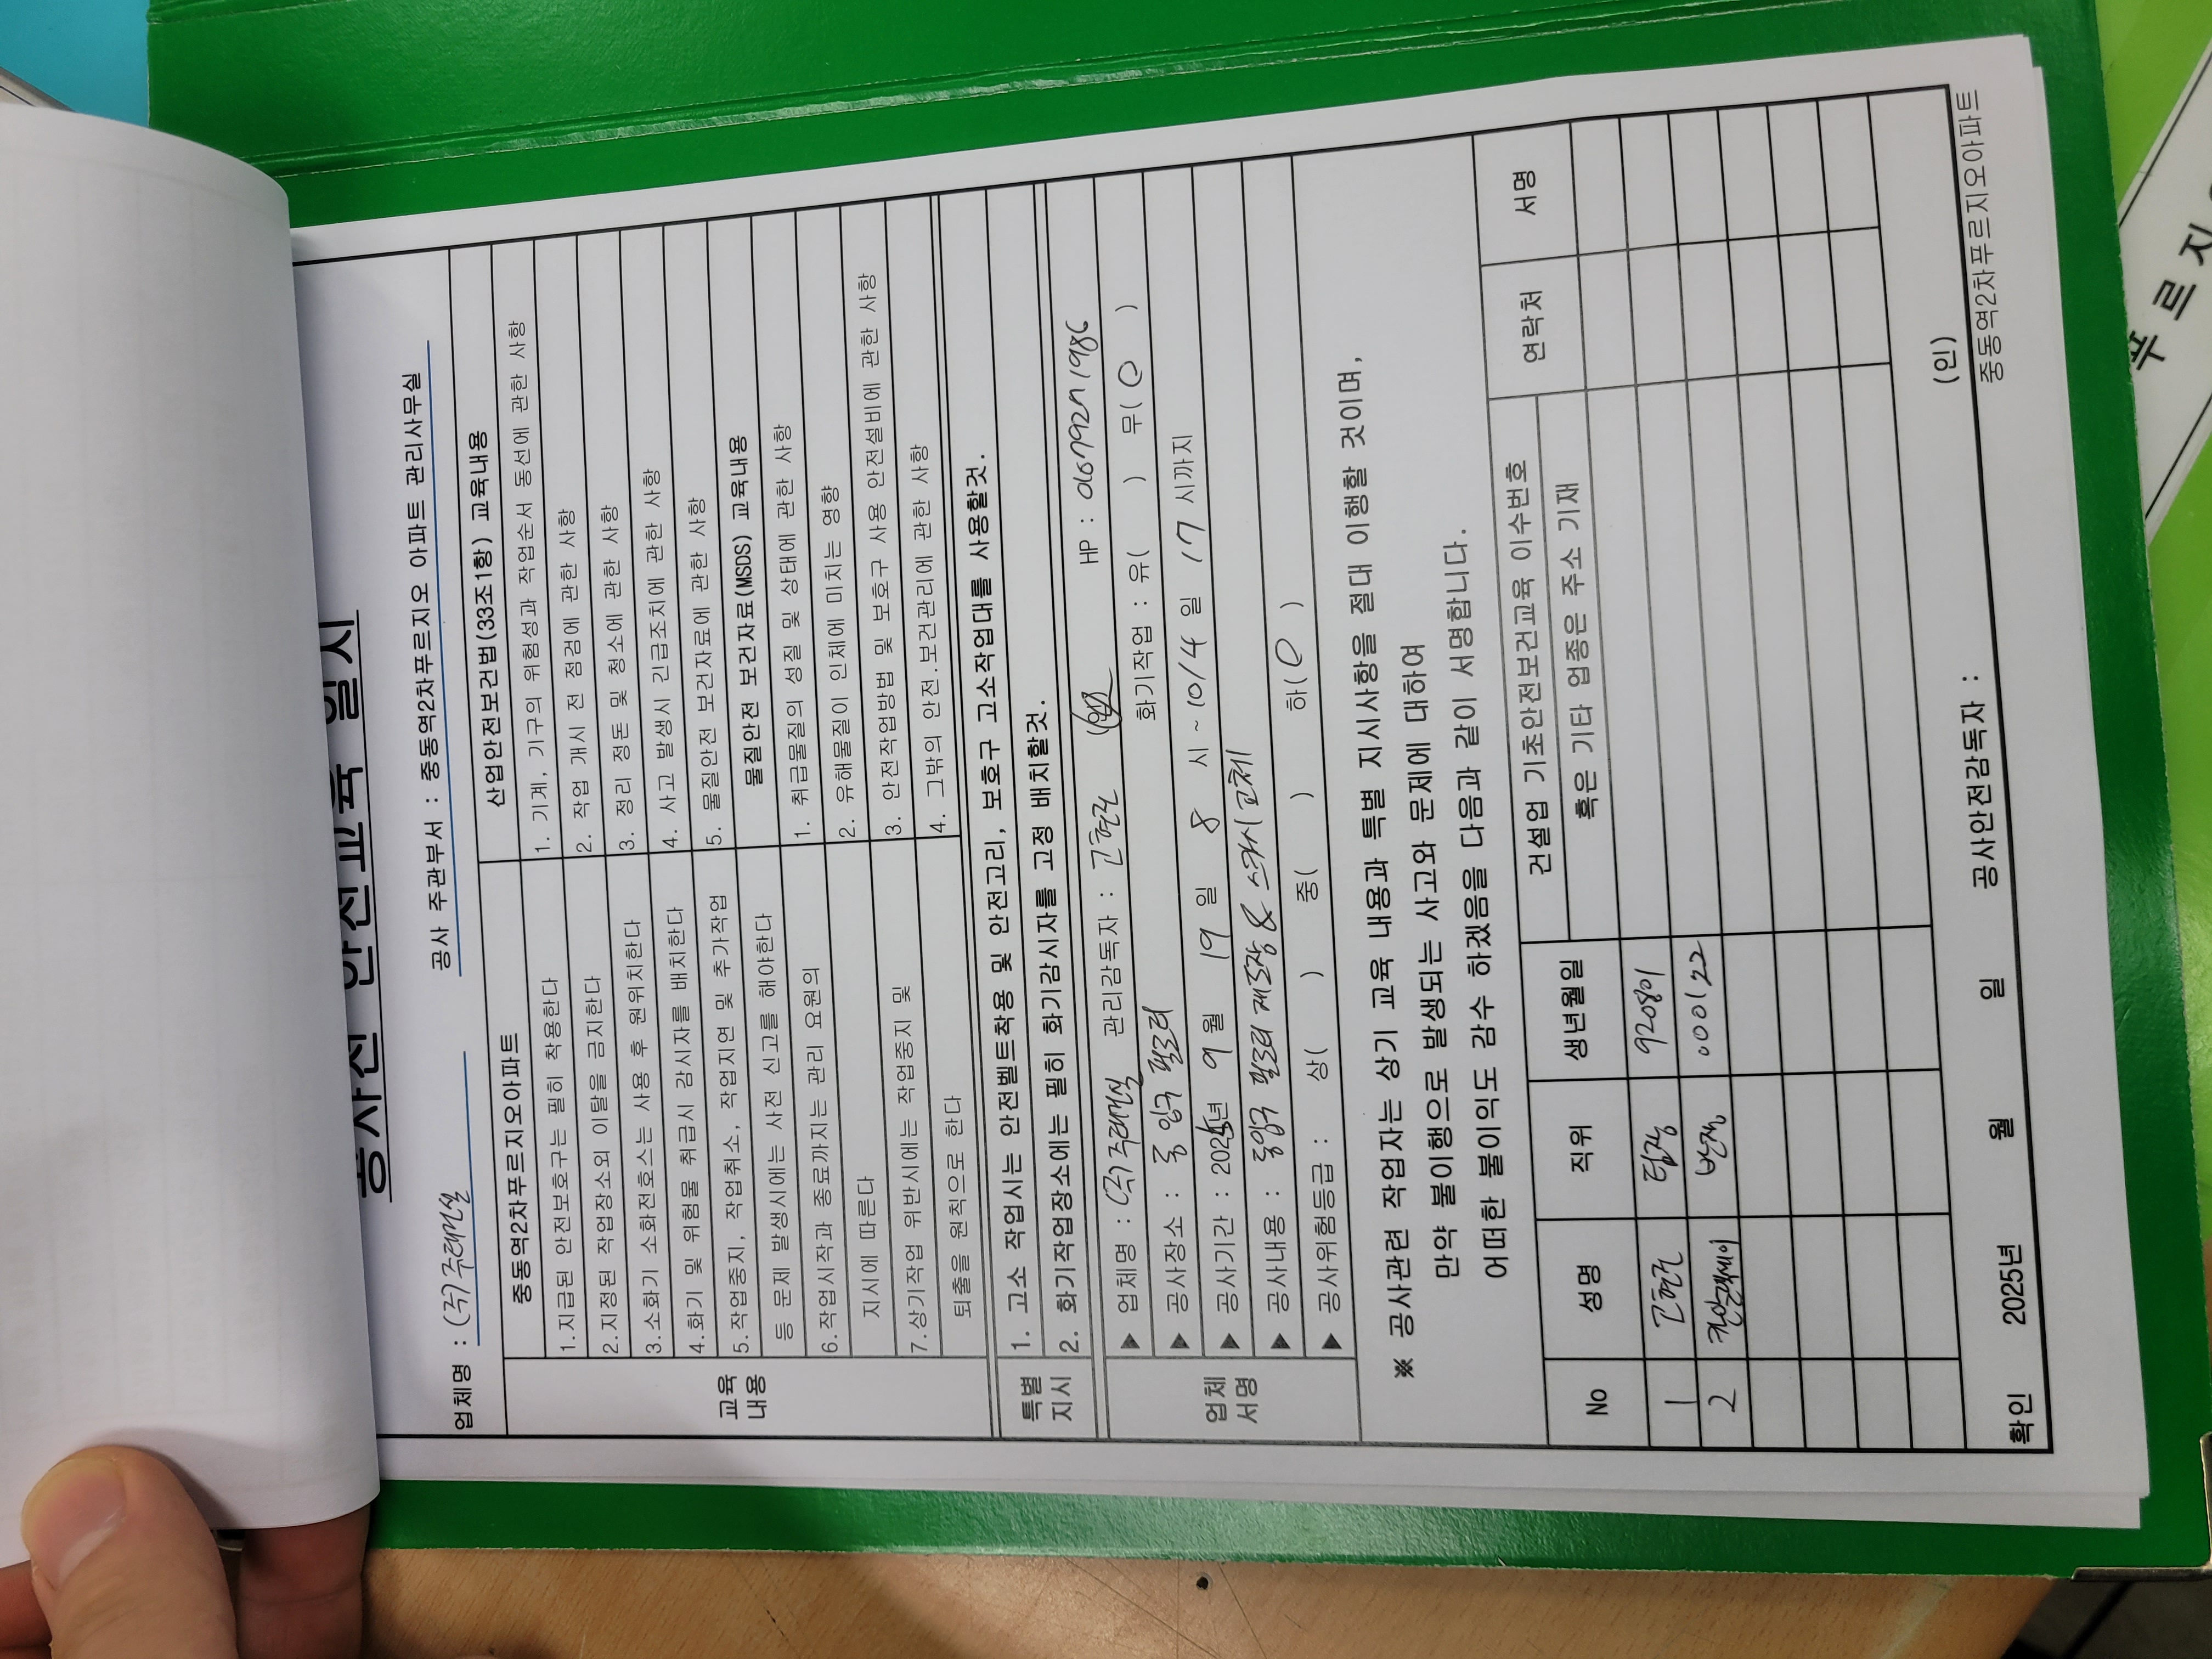 공사전 안전교육 일지
업체명 : (주)주래건설 공사 주관부서 : 중동역2차푸르지오 아파트 관리사무실
교육
내용
중동역2차푸르지오아파트
1.지급된 안전보호구는 필히 착용한다
2.지정된 작업장소외 이탈을 금지한다
3.소화기 소화전호스는 사용 후 원위치한다
4.화기 및 위험물 취급시 감시자를 배치한다
5.작업중지, 작업취소, 작업지연 및 추가작업
등 문제 발생시에는 사전 신고를 해야한다
6.작업시작과 종료까지는 관리 요원의
지시에 따른다
7.상기작업 위반시에는 작업중지 및
퇴출을 원칙으로 한다
산업안전보건법(33조1항) 교육내용
1. 기계, 기구의 위험성과 작업순서 동선에 관한 사항
2. 작업 개시 전 점검에 관한 사항
3. 정리 정돈 및 청소에 관한 사항
4. 사고 발생시 긴급조치에 관한 사항
5. 물질안전 보건자료에 관한 사항
물질안전 보건자료(MSDS) 교육내용
1. 취급물질의 성질 및 상태에 관한 사항
2. 유해물질이 인체에 미치는 영향
3. 안전작업방법 및 보호구 사용 안전설비에 관한 사항
4. 그밖의 안전.보건관리에 관한 사항
특별
지시
1. 고소 작업시는 안전벨트착용 및 안전고리, 보호구 고소작업대를 사용할것.
2. 화기작업장소에는 필히 화기감시자를 고정 배치할것.
업체
서명
▶ 업체명 : (주)주래건설 관리감독자 : HP :
▶ 공사장소 : 동 입구 필로티 화기작업 : 유( ) 무( )
▶ 공사기간 : 2025년 9 월 19 일 8 시 ~ 10/4 일 17 시까지
▶ 공사내용 : 동입구 필로티 재도장 & 스카시 교체
▶ 공사위험등급 : 상( ) 중( ) 하( )
※ 공사관련 작업자는 상기 교육 내용과 특별 지시사항을 절대 이행할 것이며,
만약 불이행으로 발생되는 사고와 문제에 대하여
어떠한 불이익도 감수 하겠음을 다음과 같이 서명합니다.
No 성명 직위 생년월일 건설업 기초안전보건교육 이수번호 연락처 서명
혹은 기타 업종은 주소 기재
1 팀장 920801
2 반장 000122
확인 2025년 월 일 공사안전감독자 : (인)
중동역2차푸르지오아파트
푸르지